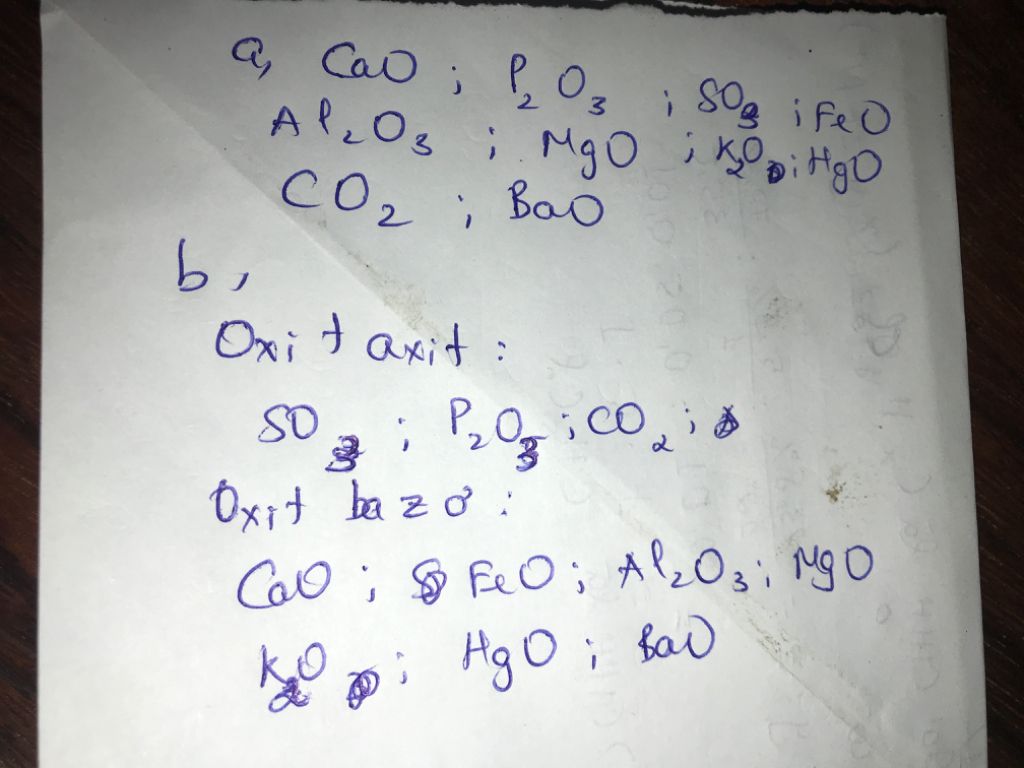 a, CaO ; P₂O₃ ; SO₃ ; FeO
Al₂O₃ ; MgO ; K₂O ; HgO
CO₂ ; BaO
b,
Oxit axit :
SO₃ ; P₂O₃ ; CO₂ ;
Oxit bazơ :
CaO ; FeO ; Al₂O₃ ; MgO
K₂O ; HgO ; BaO